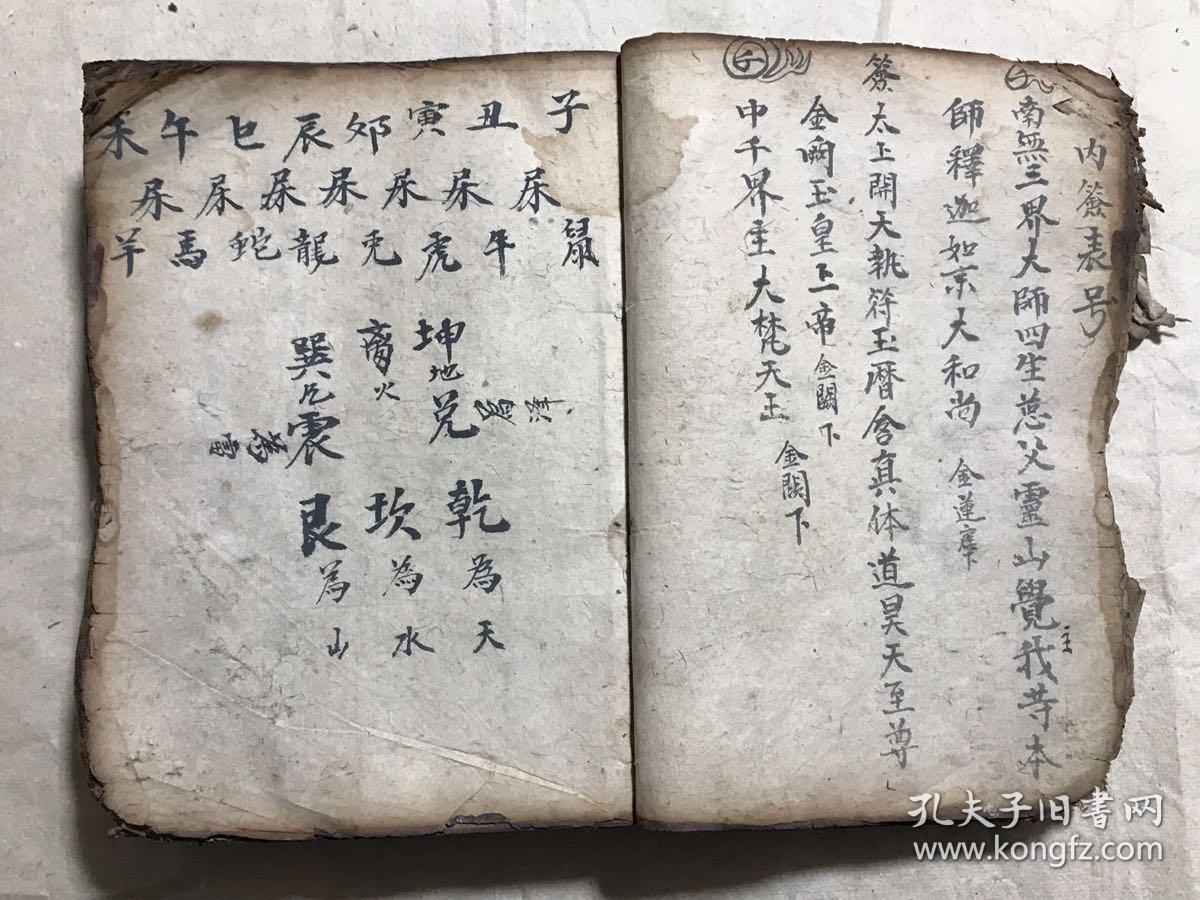 内簽表号
南無三界大師四生慈父靈山覺我等本
主
師釋迦如來大和尚 金蓮座下
簽太上開天執符玉曆含真体道昊天至尊
金闕玉皇上帝 金闕下
中千界主大梵天王 金闕下
子 丑 寅 夘 辰 巳 午 未
屎 屎 屎 屎 屎 屎 屎
鼠 牛 虎 兎 龍 蛇 馬 羊
坤地 兌為澤 乾為天
离火 坎為水
巽 震為雷 艮為山
孔夫子旧书网
www.kongfz.com